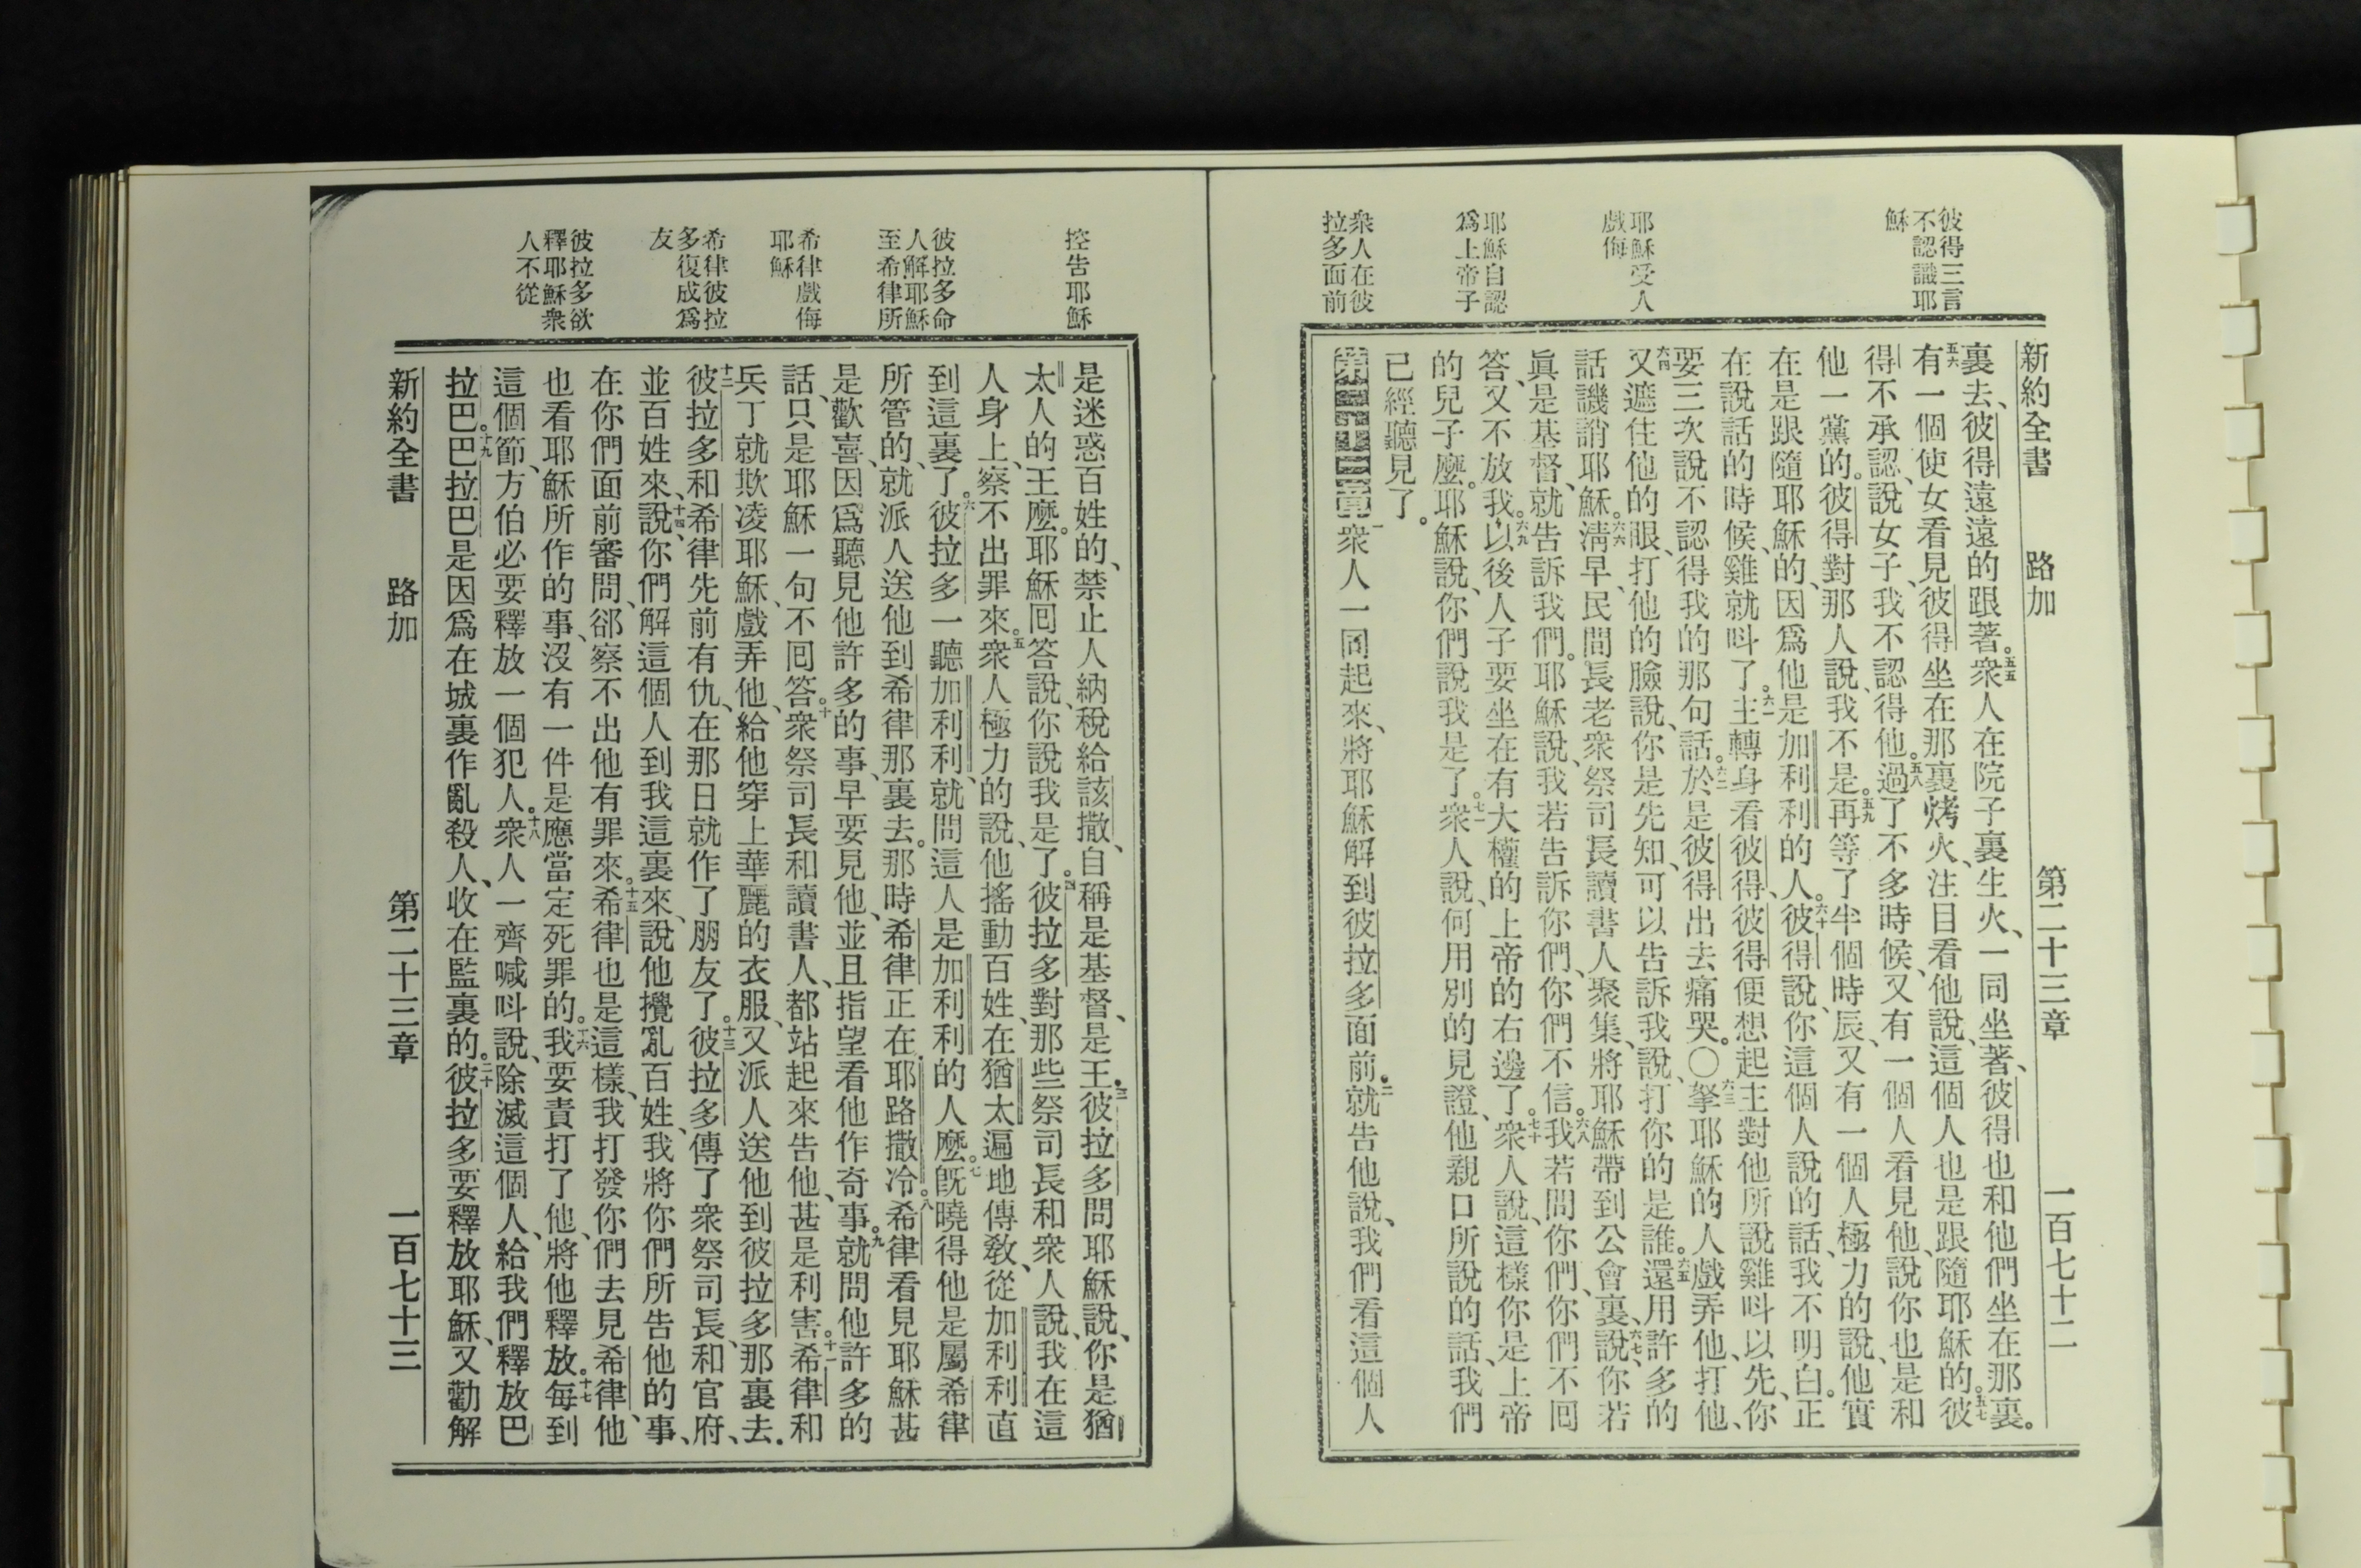 彼得三言
不認識耶
穌
耶穌受人
戲侮
耶穌自認
爲上帝子
衆人在彼
拉多面前
新約全書 路加 第二十三章 一百七十二
裏去、彼得遠遠的跟著。五五衆人在院子裏生火、一同坐著、彼得也和他們坐在那裏。
五六有一個使女看見彼得坐在那裏烤火、注目看他說、這個人也是跟隨耶穌的。五七彼
得不承認、說女子、我不認得他。五八過了不多時候、又有一個人看見他、說你也是和
他一黨的。彼得對那人說、我不是。五九再等了半個時辰、又有一個人極力的說、他實
在是跟隨耶穌的、因爲他是加利利的人。六十彼得說、你這個人說的話、我不明白。正
在說話的時候、雞就呌了。六一主轉身看彼得、彼得便想起主對他所說雞呌以先、你
要三次說不認得我的那句話。六二於是彼得出去痛哭。〇六三拏耶穌的人戲弄他、打他、
六四又遮住他的眼、打他的臉說、你是先知、可以告訴我說、打你的是誰。六五還用許多的
話譏誚耶穌。六六淸早、民間長老衆祭司長讀書人聚集、將耶穌帶到公會裏、六七說、你若
眞是基督、就告訴我們。耶穌說、我若告訴你們、你們不信。六八我若問你們、你們不囘
答、又不放我。六九以後人子要坐在有大權的上帝的右邊了。七十衆人說、這樣你是上帝
的兒子麽。耶穌說、你們說我是了。七一衆人說、何用別的見證、他親口所說的話、我們
已經聽見了。
第二十三章一衆人一同起來、將耶穌解到彼拉多面前。二就告他說、我們看這個人
控告耶穌
彼拉多命
人解耶穌
至希律所
希律戲侮
耶穌
希律彼拉
多復成爲
友
彼拉多欲
釋耶穌衆
人不從
是迷惑百姓的、禁止人納稅給該撒、自稱是基督、是王。三彼拉多問耶穌說、你是猶
太人的王麽。耶穌囘答說、你說我是了。四彼拉多對那些祭司長和衆人說、我在這
人身上、察不出罪來。五衆人極力的說、他搖動百姓、在猶太遍地傳敎、從加利利直
到這裏了。六彼拉多一聽加利利、就問這人是加利利的人麽。七旣曉得他是屬希律
所管的、就派人送他到希律那裏去。那時希律正在耶路撒冷。八希律看見耶穌甚
是歡喜、因爲聽見他許多的事、早要見他、並且指望看他作奇事。九就問他許多的
話、只是耶穌一句不囘答。十衆祭司長和讀書人、都站起來告他、甚是利害。十一希律和
兵丁就欺凌耶穌、戲弄他、給他穿上華麗的衣服、又派人送他到彼拉多那裏去。
十二彼拉多和希律先前有仇、在那日就作了朋友了。十三彼拉多傳了衆祭司長、和官府、
並百姓來、十四說、你們解這個人到我這裏來、說他攪亂百姓、我將你們所告他的事、
在你們面前審問、郤察不出他有罪來。十五希律也是這樣、我打發你們去見希律、他
也看耶穌所作的事、沒有一件是應當定死罪的。十六我要責打了他、將他釋放。十七每到
這個節、方伯必要釋放一個犯人。十八衆人一齊喊呌說、除滅這個人、給我們釋放巴
拉巴。十九巴拉巴是因爲在城裏作亂殺人、收在監裏的。二十彼拉多要釋放耶穌、又勸解
新約全書 路加 第二十三章 一百七十三